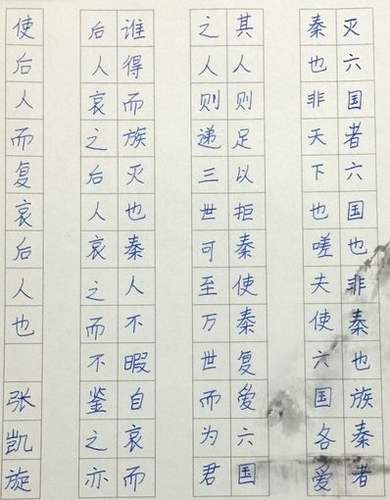 灭六国者六国也非秦也族秦者
秦也非天下也嗟夫使六国各爱
其人则足以拒秦使秦复爱六国
之人则递三世可至万世而为君
谁得而族灭也秦人不暇自哀而
后人哀之后人哀之而不鉴之亦
使后人而复哀后人也 张凯旋